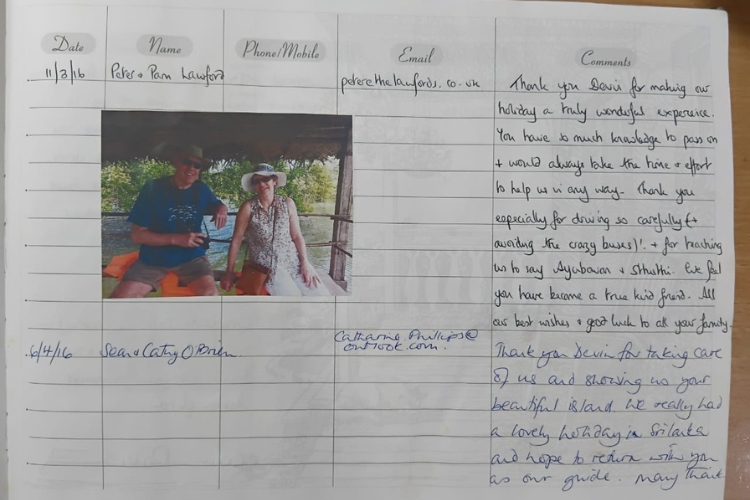 Date Name Phone/Mobile Email Comments
11/3/16 Peter + Pam Lawford peterethelawfords.co.uk Thank you Devin for making our
holiday a truly wonderful experience.
You have so much knowledge to pass on
+ would always take the time + effort
to help us in any way. Thank you
especially for driving so carefully (+
avoiding the crazy buses)! + for teaching
us to say Ayubowan + sthuthi. We feel
you have become a true kind friend. All
our best wishes + good luck to all your family.
6/4/16 Sean & Cathy O'Brien Catharine.Phillips@
outlook.com.
Thank you Devin for taking care
of us and showing us your
beautiful island We really had
a lovely holiday in Sri Lanka
and hope to return with you
as our guide. Many Thank